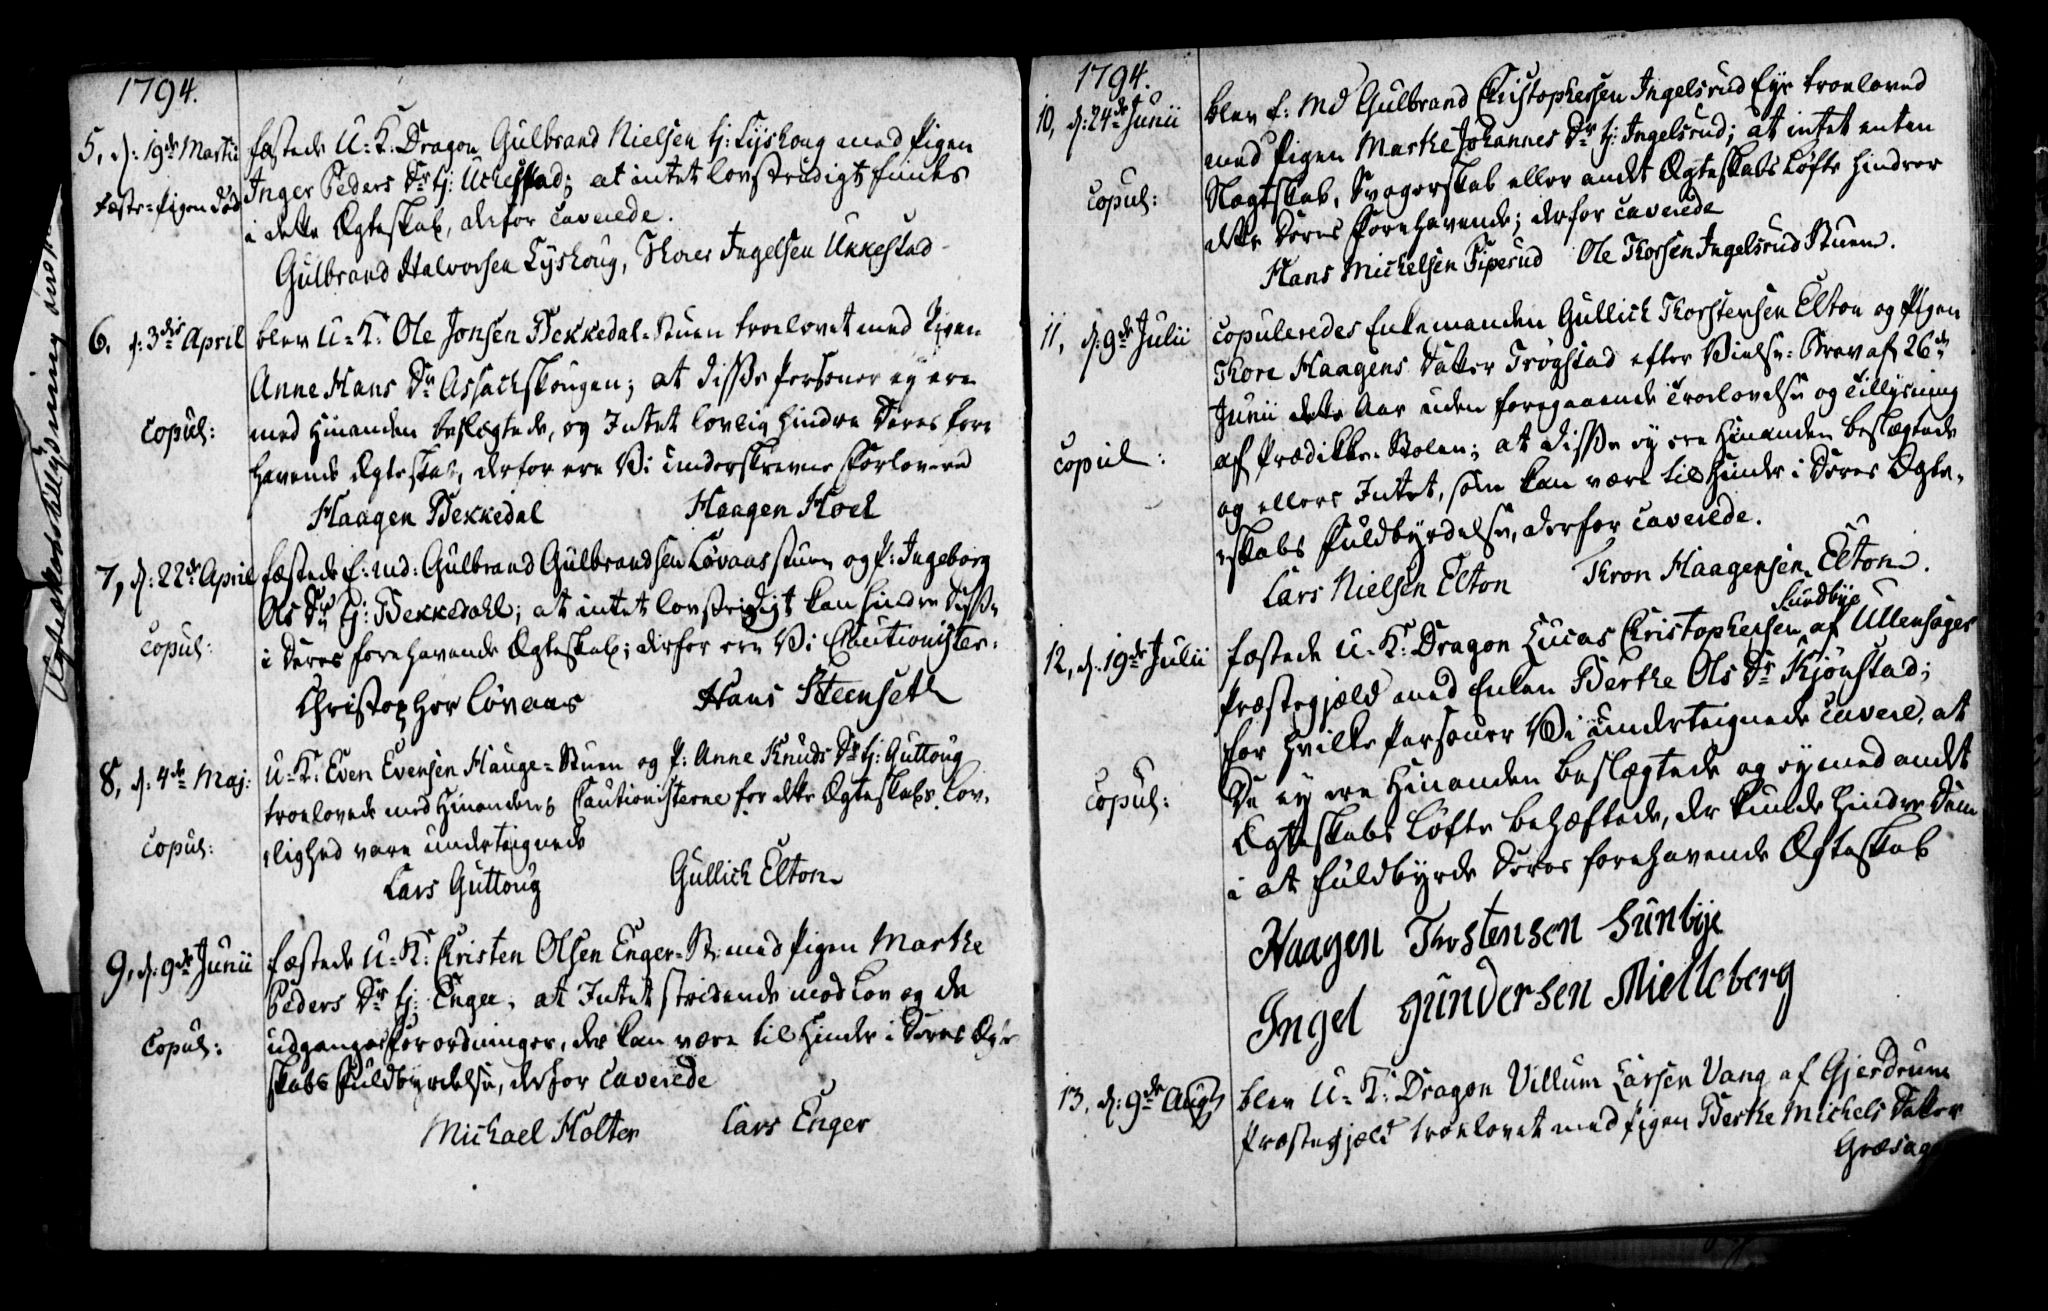 1794.
5, d: 19de Martii fæstede U: K: Dragon Gulbrand Nielsen tj: Lyskoug med Pigen
Fæste-Pigen død Inger Peders Dr tj: Uckestad; at intet lovstridigt findes
i dette Ægteskab, derfor caverede.
Gulbrand Halvorsen Lyskoug, Thoer Ingelsen Ukkestad
6. d: 3die April blev U-K: Ole Jonsen Bekkedal-Stuen troelovet med Pigen
Anne Hans Dr Assachskougen; at disse Personer ey ere
copul: med hinanden beslægtede, og Intet lovlig hindre Deres fore
havende Ægteskab, derfor ere Vi underskrevne Forlovere
Haagen Bekkedal Haagen Hoel
7, d: 22de April fæstede E: md: Gulbrand Gulbrandsen Lövaasstuen og P: Ingeborg
Ols Dr tj: Bekkedahl; at intet lovstridigt kan hindre Disse
copul: i Deres forehavende Ægteskab; derfor ere Vi Cautionister.
Christopher Lövaas Hans Steenseth
8, d: 4de Maj: U-K: Even Evensen Hauge-Stuen og P: Anne Knuds Dr tj: Guttoug
troelovede med Hinanden; Cautionisterne for dette Ægteskabs Lov-
copul: lighed vare undertegnede
Lars Guttoug Gullich Elton
9, d: 9de Junii fæstede U-K: Christen Olsen Enger-St: med Pigen Marthe
Peders Dr tj: Enger, at Intet stridende mod Lov og de
copul: udgangne Forordninger, der kan være til Hinder i Deres Ægte
skabs Fuldbyrdelse, derfor caverede
Michael Holter Lars Enger
1794.
10, d: 24de Junii blev E: Md Gulbrand Christophersen Ingelsrud Eye troeloved
med Pigen Marthe Johannes Dr tj: Ingelsrud; at intet enten
copul: Slægtskab, Svogerskab eller andet Ægteskabs Løfte hindrer
dette Deres Forehavende; derfor caverede
Hans Michelsen Piperud Ole Thorsen Ingelsrud Stuen.
11, d: 9de Julii copuleredes Enkemanden Gullich Thorstensen Elton og Pigen
Thore Haagens Datter Trøgstad efter Vielse-Brev af 26de
Junii dette Aar uden foregaaende Troelovelse og Tillysning
copul: af Prædikke-Stolen; at disse ey ere Hinanden beslægtede
og ellers Intet, som kan være til Hinder i Deres Ægte-
skabs Fuldbyrdelse, derfor caverede.
Lars Nielsen Elton Thron Haagensen Elton.
Sundbye
12, d: 19de Julii fæstede U-K: Dragon Lucas Christophersen af Ullensager
Præstegjeld med Enken Berthe Ols Dr Kjönstad;
for hvilke Personer Vi undertegnede cavere, at
copul: De ey ere Hinanden beslægtede og ey med andet
Ægteskabs Løfte behæftede, der kunde hindre Dem
i at fuldbyrde Deres forehavende Ægteskab
Haagen Thostensen Sunbye
Ingel Gundersen Mielleberg
13, d: 9de Aug: blev U-K: Dragon Villum Larsen Vang af Gjerdrum
Præstegjeld troelovet med Pigen Berthe Michels Datter